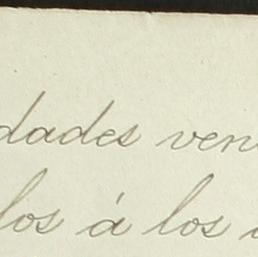 dades ven
los á los